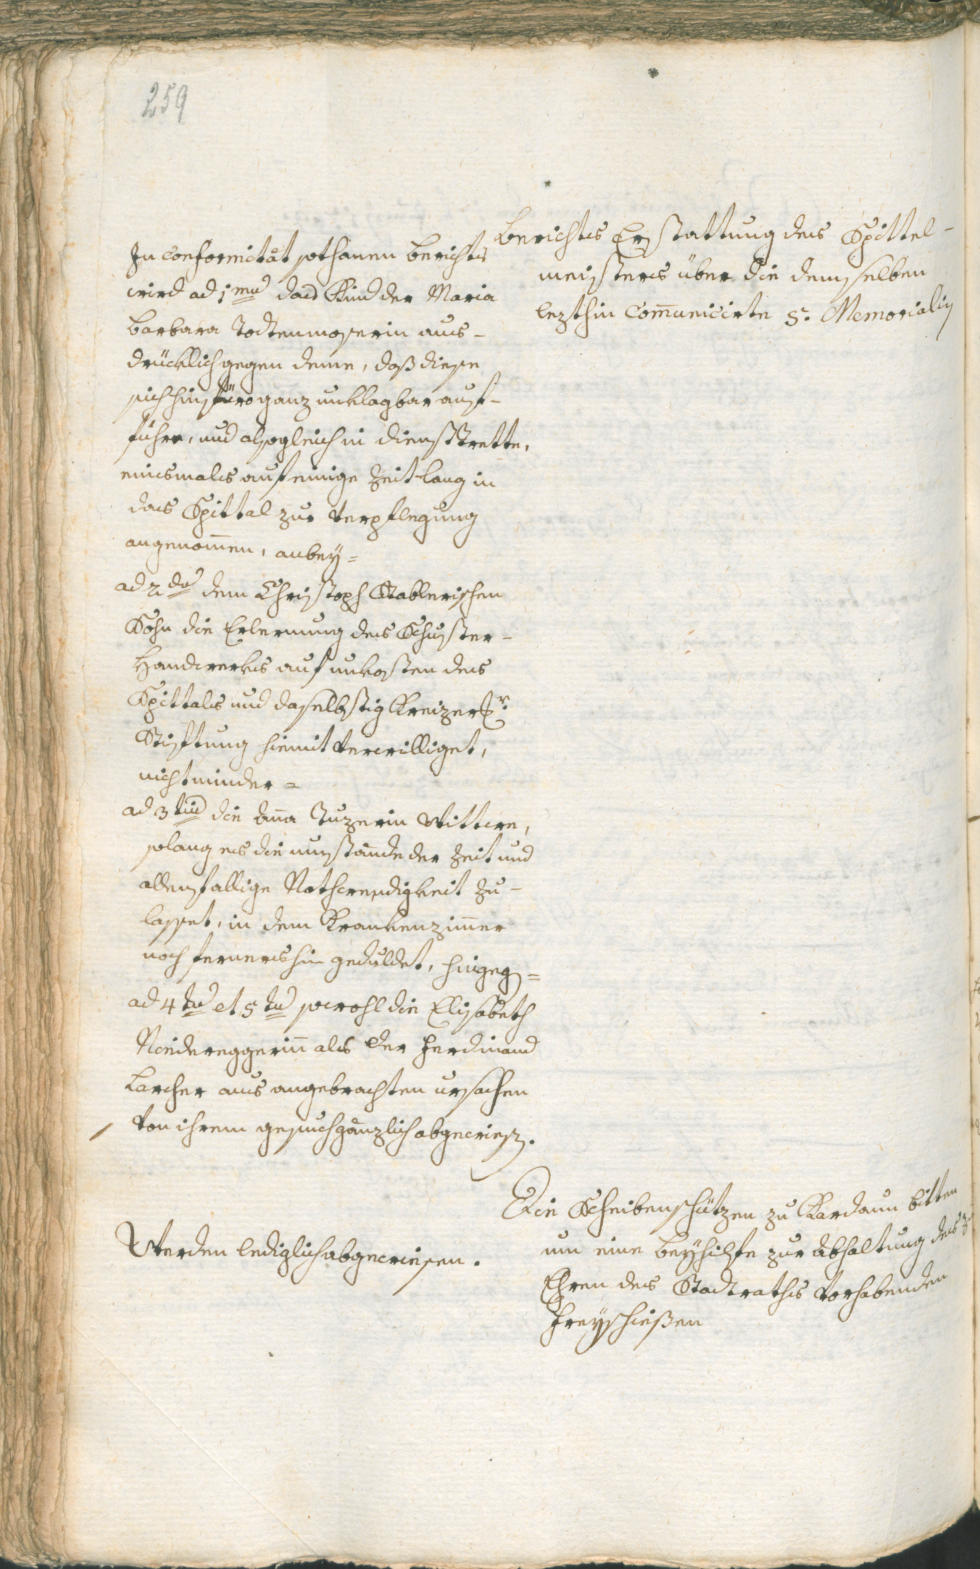 259
Berichts Erstattung des Spittel-
meisters über die demselben
lezthin com̄unicirte 5. Memorialin
In conformitåt sothanen berichts
wird ad 1mũ das Kind der Maria
Barbara Todtenmoserin aus-
drücklich gegen deme, daß diese
sich hinfüro ganz unklagbar auf-
führe, und alsogleich in dienst trette,
einsmals auf einige Zeit lang in
das Spittal zur Verpflegung
angenom̄en, anbey=
ad 2do dem Christoph Stablerischen
Sohn die Erlernung des Schuster-
Handwerks auf unkosten des
Spittals und daselbstig Kreizer
Stiftung hiemit verwilliget,
nicht minder=
ad 3tiũ die Añna Tuzerin Wittwe,
solang es die umstånde der Zeit und
allenfallige Nothwendigkeit zu-
lasset, in dem Krankenzim̄er
noch fernershin geduldet, hingeg=
ad 4tũ et 5tũ sowohl die Elisabeth
Neidereggeriñ als der Ferdinand
Larcher aus angebrachten ursachen
von ihrem gesuch gänzlich abgewiesen.
Die Scheibenschützen zu Kardaun bitten
um eine beyhilfe zur Abhaltung des z
Ehren des Stadtraths vorhabenden
Freyschießen
Werden lediglich abgewiesen.